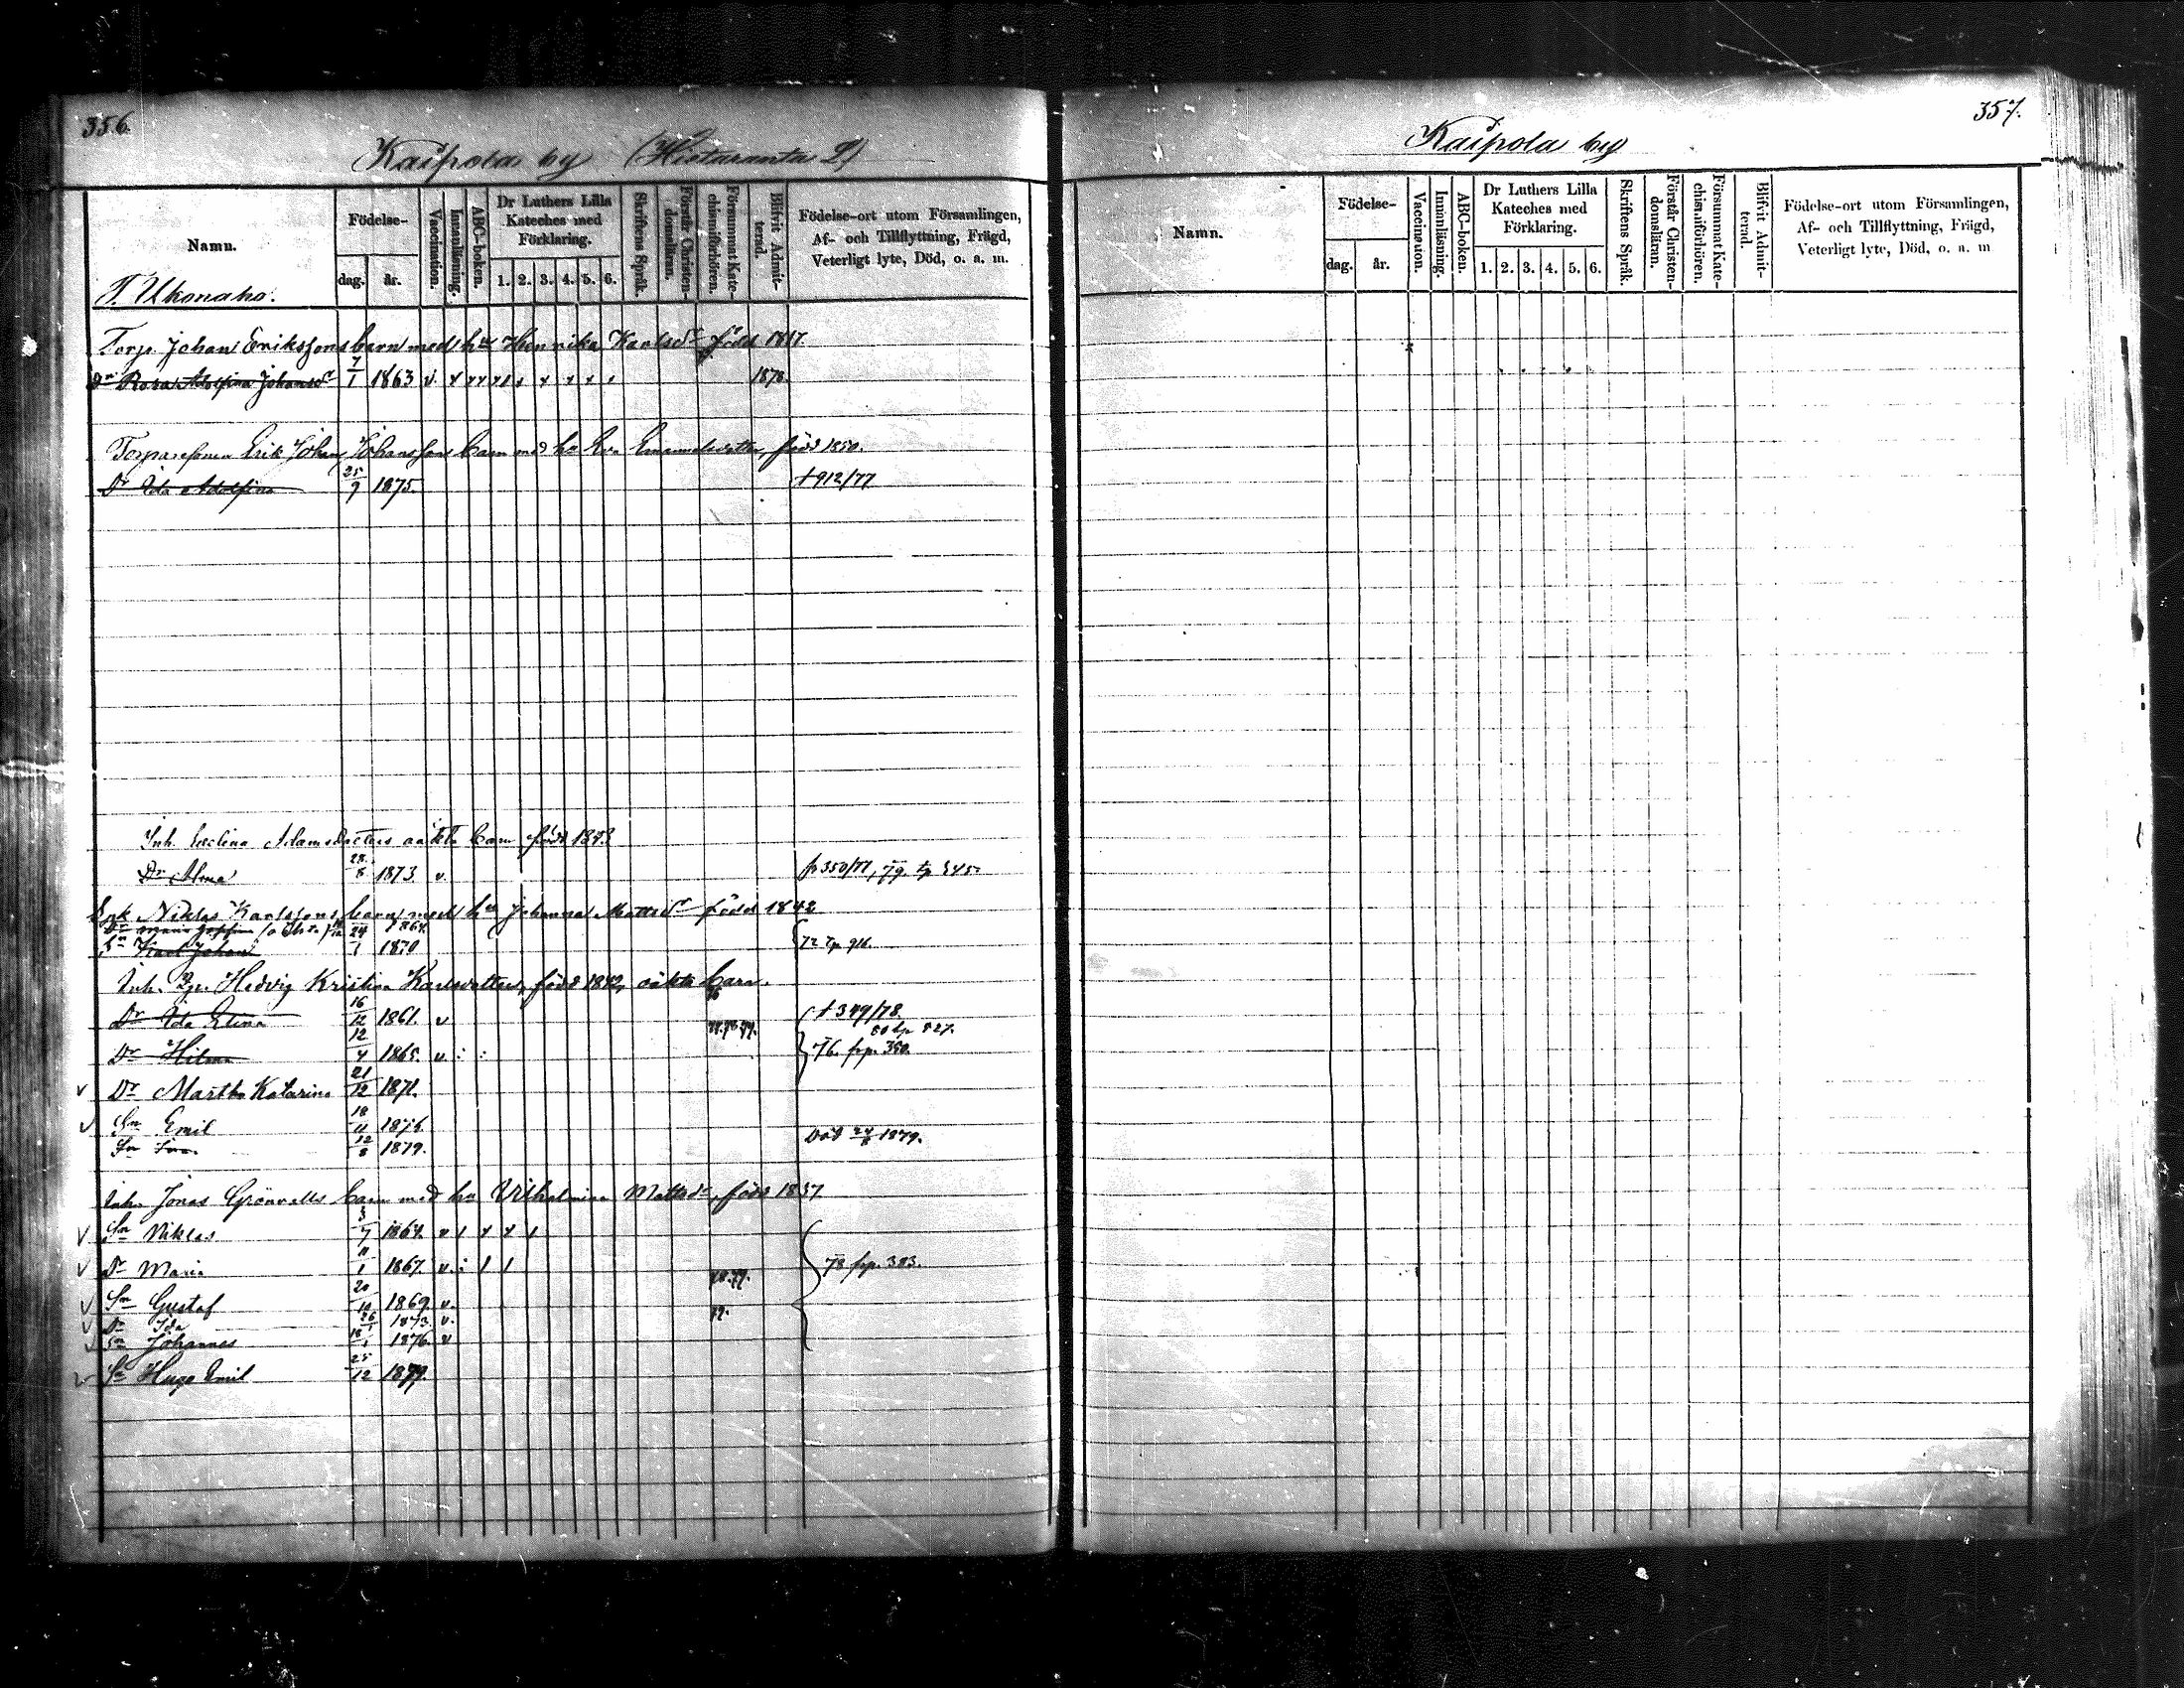 356.
Kaipola by (Hietaranta L)
Namn.
Födelse-
dag.
år.
Vaccination.
Innanläsning.
ABC-boken.
Dr Luthers Lilla Kateches med Förklaring.
1. 2. 3. 4. 5. 6.
Skriftens Språk.
Förstår Christendomsläran.
Försummat Katechismiförhören.
Blifvit Admitterad.
Födelse-ort utom Församlingen, Af- och Tillflyttning, Frägd, Veterligt lyte, Död, o. a. m.
T. Ukonaho.
Torp. Johan Erikssons barn med hu Henrika Karlsdr född 1817
Dr Rosa Adolfina Johansdr 7/1 1863 v. 1878.
Erik Johan Johanssons barn med hu Eva Emanuelsdotter, född 1850.
Dr Ida Adolfina 25/9 1875. † 912/77
Inh. Adamsdotters oäkta barn född
Dr Alma 28/8 1873 v. fp 350/77, 79 tp 345.
Niklas Karlssons barn med hu Johanna Mattsdr född 1842
24 1864
Sn Karl Johan 1 1870 72 tp 916.
Inh. Hedvig Kristina Karlsdotters, född 1842, oäkta barn.
Dr Ida Elina 16/12 1861. v † 349/78.
80 tp 827.
Dr Hilma 12/4 1865. v : : 76. frp. 350.
v Dr Martha Katarina 21/12 1871.
v Sn Emil 18/11 1876
Sn 12/8 1879. Död 24/8 1879.
Inh. Jonas Grönvalls barn med hu Vilhelmina Mattsdr, född 1837
v Sn Niklas 3/7 1864. v
v Dr Maria 11/1 1867. v. 78.79. 78 frp. 383.
v Sn Gustaf 20/10 1869. v. 79.
v Dr Ida 26/1 1873. v.
v Sn Johannes 18/1 1876 v
v Sn Hugo Emil 25/12 1879.
357.
Kaipola by
Namn.
Födelse-
dag.
år.
Vaccination.
Innanläsning.
ABC-boken.
Dr Luthers Lilla Kateches med Förklaring.
1. 2. 3. 4. 5. 6.
Skriftens Språk.
Förstår Christendomsläran.
Försummat Katechismiförhören.
Blifvit Admitterad.
Födelse-ort utom Församlingen, Af- och Tillflyttning, Frägd, Veterligt lyte, Död, o. a. m